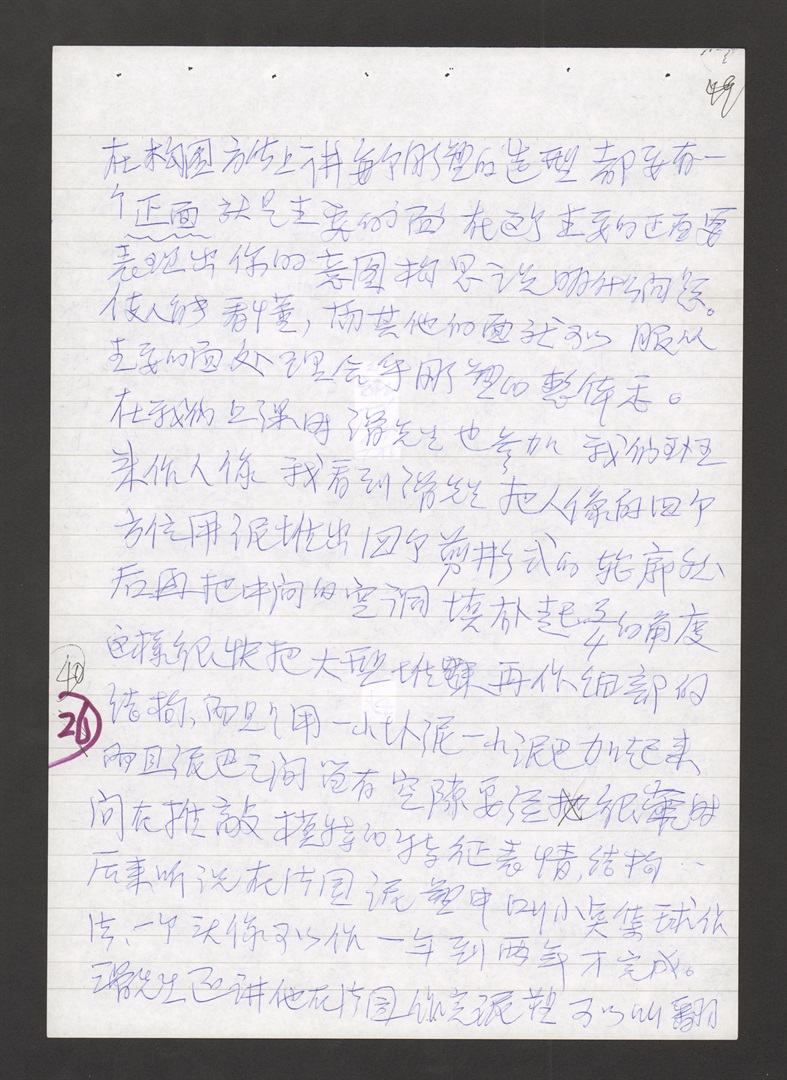 49
在构图方法上讲每个雕塑的造型 都要有一
个正面 就是主要的面 在这个主要的正面要
表现出你的意图构思说明什么问题。
使人能看懂, 而其他的面就可以服从
主要的面处理会等雕塑的整体
在我们上课时 滑先生也参加 我们班
来作人像 我看到滑先生把人像的四个
方位用泥堆出四个剪影形式的轮廓然
后再把中间的空洞填补起3/4的角度
这样很快把大型堆 再作细部的
40
结构, 而且用一小块泥一小泥巴加起来
26
而且泥巴之间留有空隙要经 很 时
间在推敲模特的特征表情, 结构…
后来听说在法国泥塑中叫小 集球作
法, 一个头像可以作一年到两年才完成。
滑先生还讲他在法国作完泥塑可以叫翻